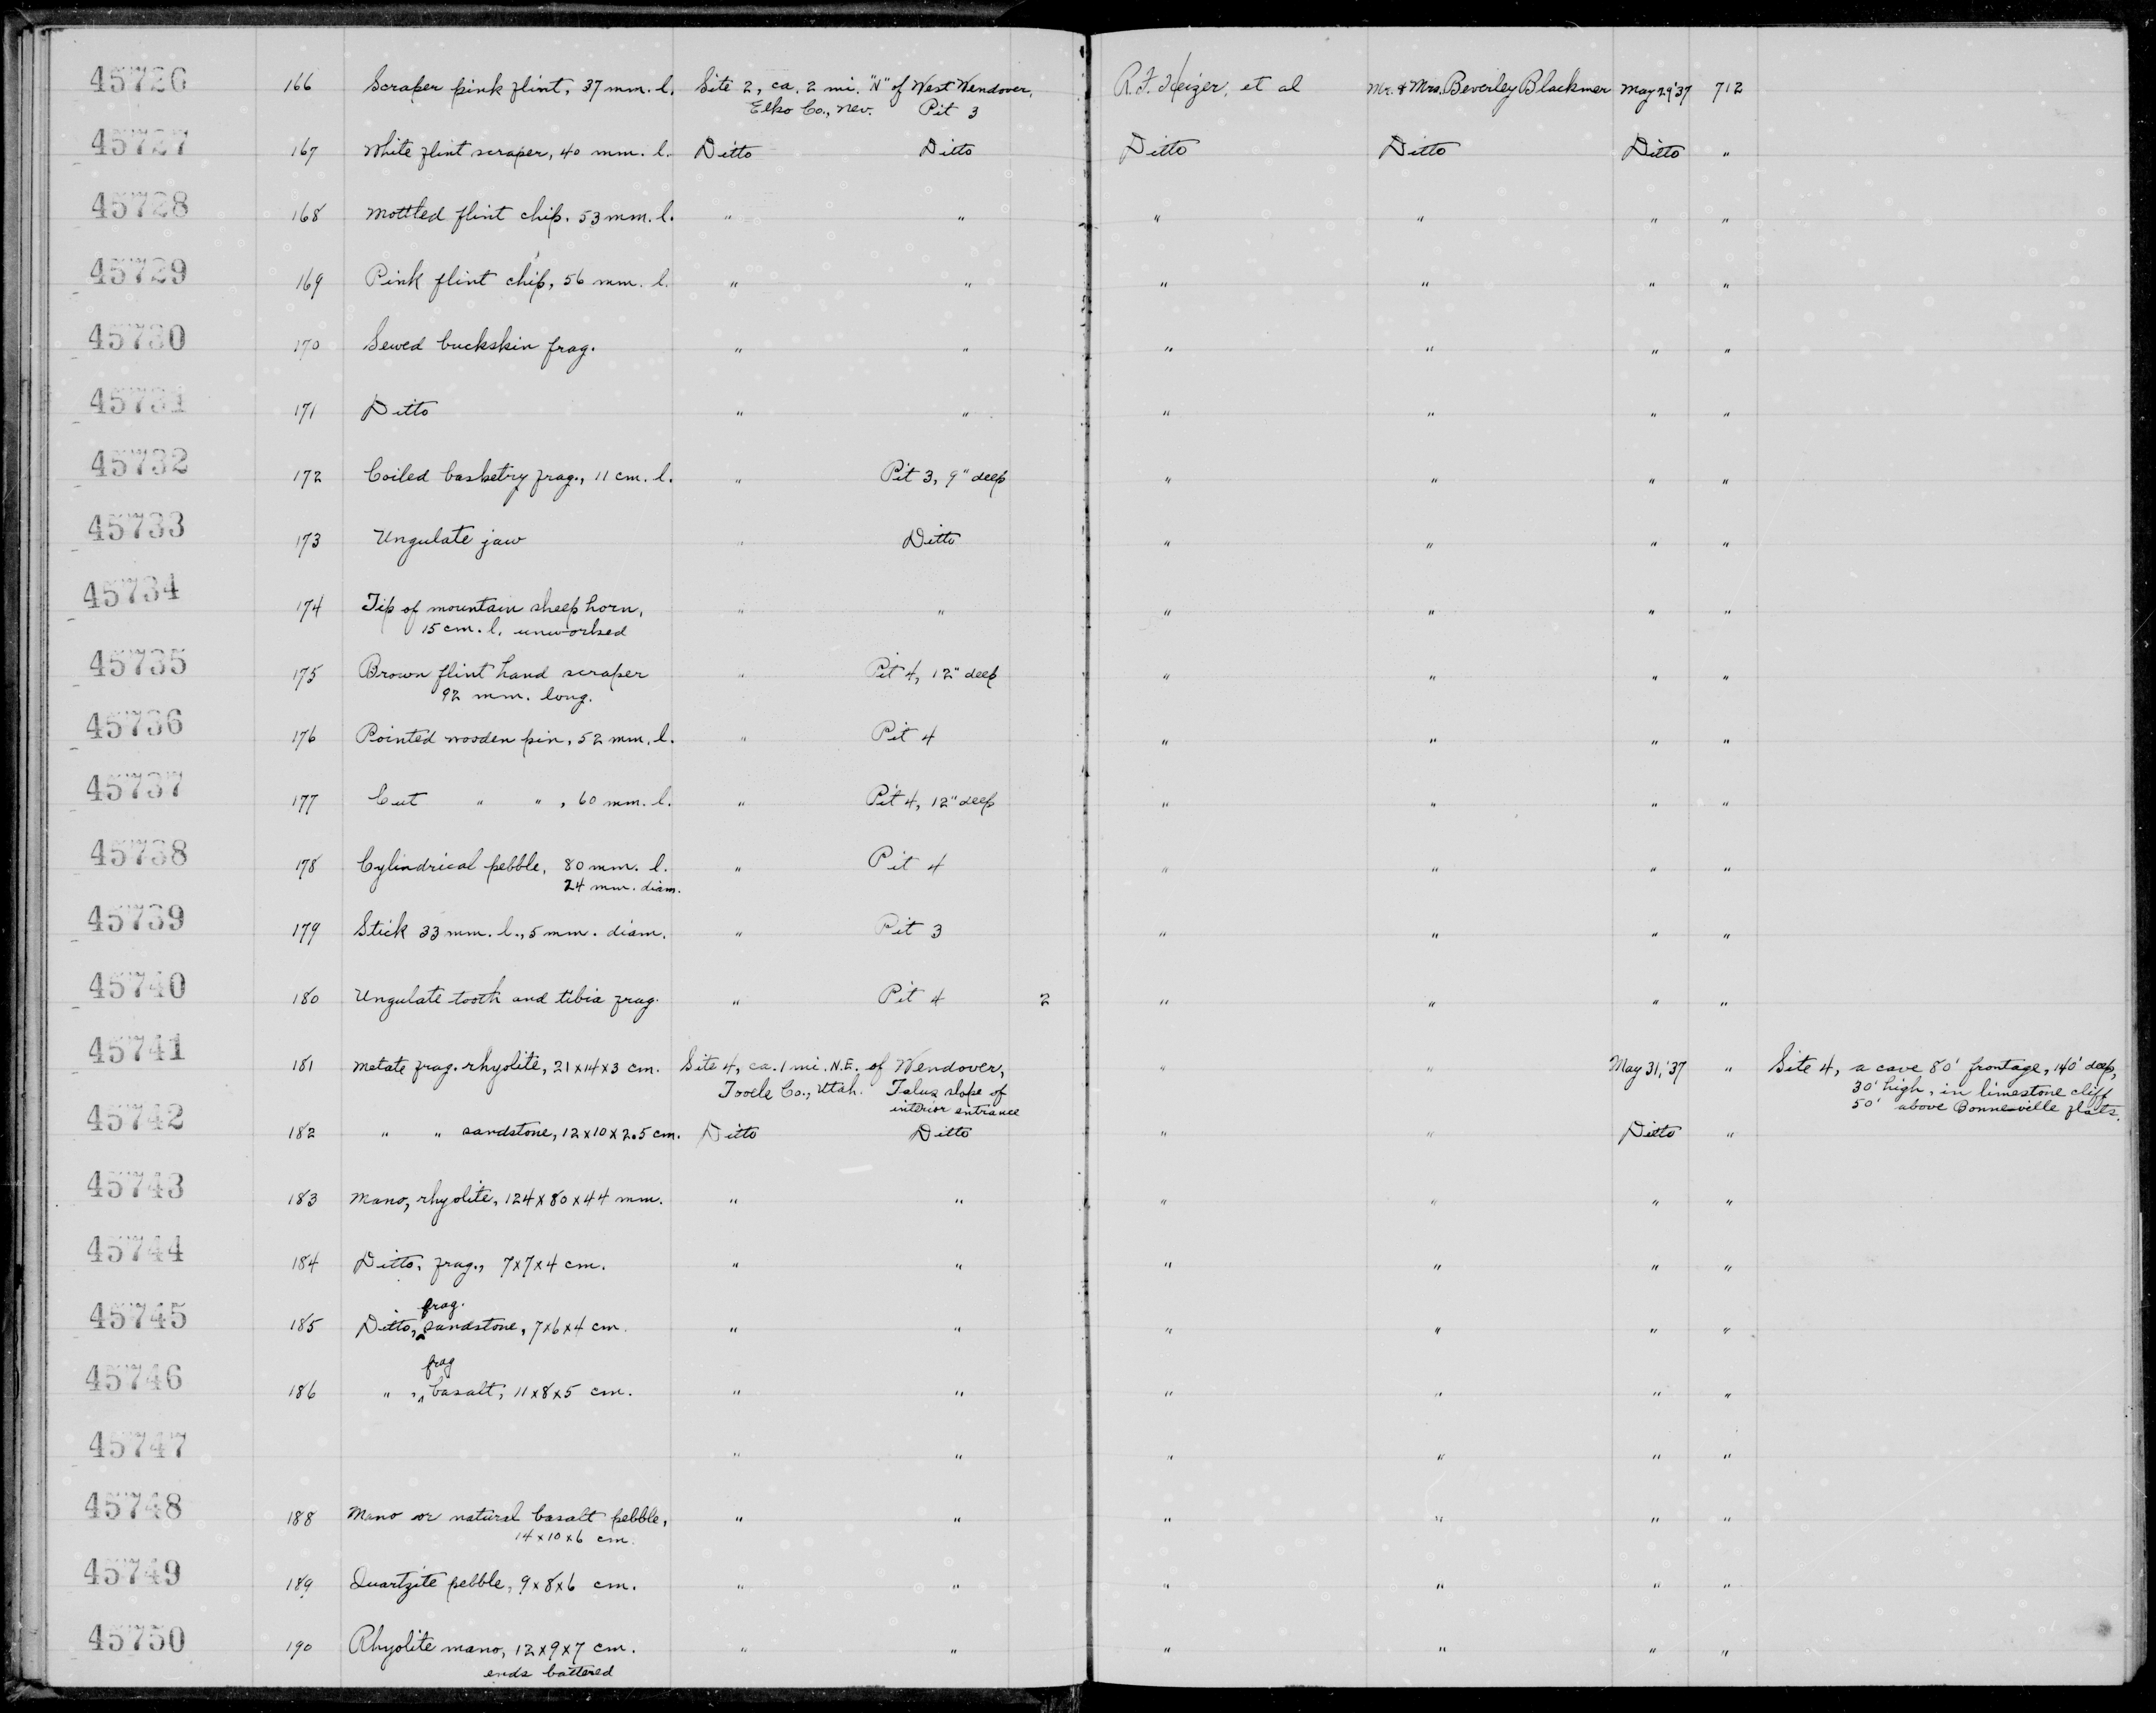 45726 166 Scraper pink flint, 37 mm. l. Site 2, ca. 2 mi. "N" of West Wendover, R.F. Heizer, et al Mr. & Mrs. Beverley Blackmer May 29 '37 712
Elko Co., Nev. Pit 3
45727 167 White flint scraper, 40 mm. l. Ditto Ditto Ditto Ditto Ditto "
45728 168 Mottled flint chip. 53 mm. l. " " " " " "
45729 169 Pink flint chip, 56 mm. l. " " " " " "
45730 170 Sewed buckskin frag. " " " " " "
45731 171 Ditto " " " " " "
45732 172 Coiled basketry frag., 11 cm. l. " Pit 3, 9" deep " " " "
45733 173 Ungulate jaw " Ditto " " " "
45734 174 Tip of mountain sheep horn, " " " " " "
15 cm. l. unworked
45735 175 Brown flint hand scraper " Pit 4, 12" deep " " " "
92 mm. long.
45736 176 Pointed wooden pin, 52 mm. l. " Pit 4 " " " "
45737 177 Cut " " , 60 mm. l. " Pit 4, 12" deep " " " "
45738 178 Cylindrical pebble, 80 mm. l. " Pit 4 " " " "
24 mm. diam.
45739 179 Stick 33 mm. l., 5 mm. diam. " Pit 3 " " " "
45740 180 Ungulate tooth and tibia frag. " Pit 4 2 " " " "
45741 181 Metate frag. rhyolite, 21x14x3 cm. Site 4, ca. 1 mi. N.E. of Wendover, " " May 31, '37 " Site 4, a cave 80' frontage, 140' deep,
Tooele Co., Utah. Talus slope of 30' high, in limestone cliff
interior entrance 50' above Bonneville flats.
45742 182 " " sandstone, 12x10x2.5 cm. Ditto Ditto " " Ditto "
45743 183 Mano, rhyolite, 124x80x44 mm. " " " " " "
45744 184 Ditto, frag., 7x7x4 cm. " " " " " "
frag.
45745 185 Ditto, ^ sandstone, 7x6x4 cm. " " " " " "
frag
45746 186 " , ^ basalt, 11x8x5 cm. " " " " " "
45747 " " " " " "
45748 188 Mano or natural basalt pebble, " " " " " "
14x10x6 cm.
45749 189 Quartzite pebble, 9x8x6 cm. " " " " " "
45750 190 Rhyolite mano, 12x9x7 cm. " " " " " "
ends battered